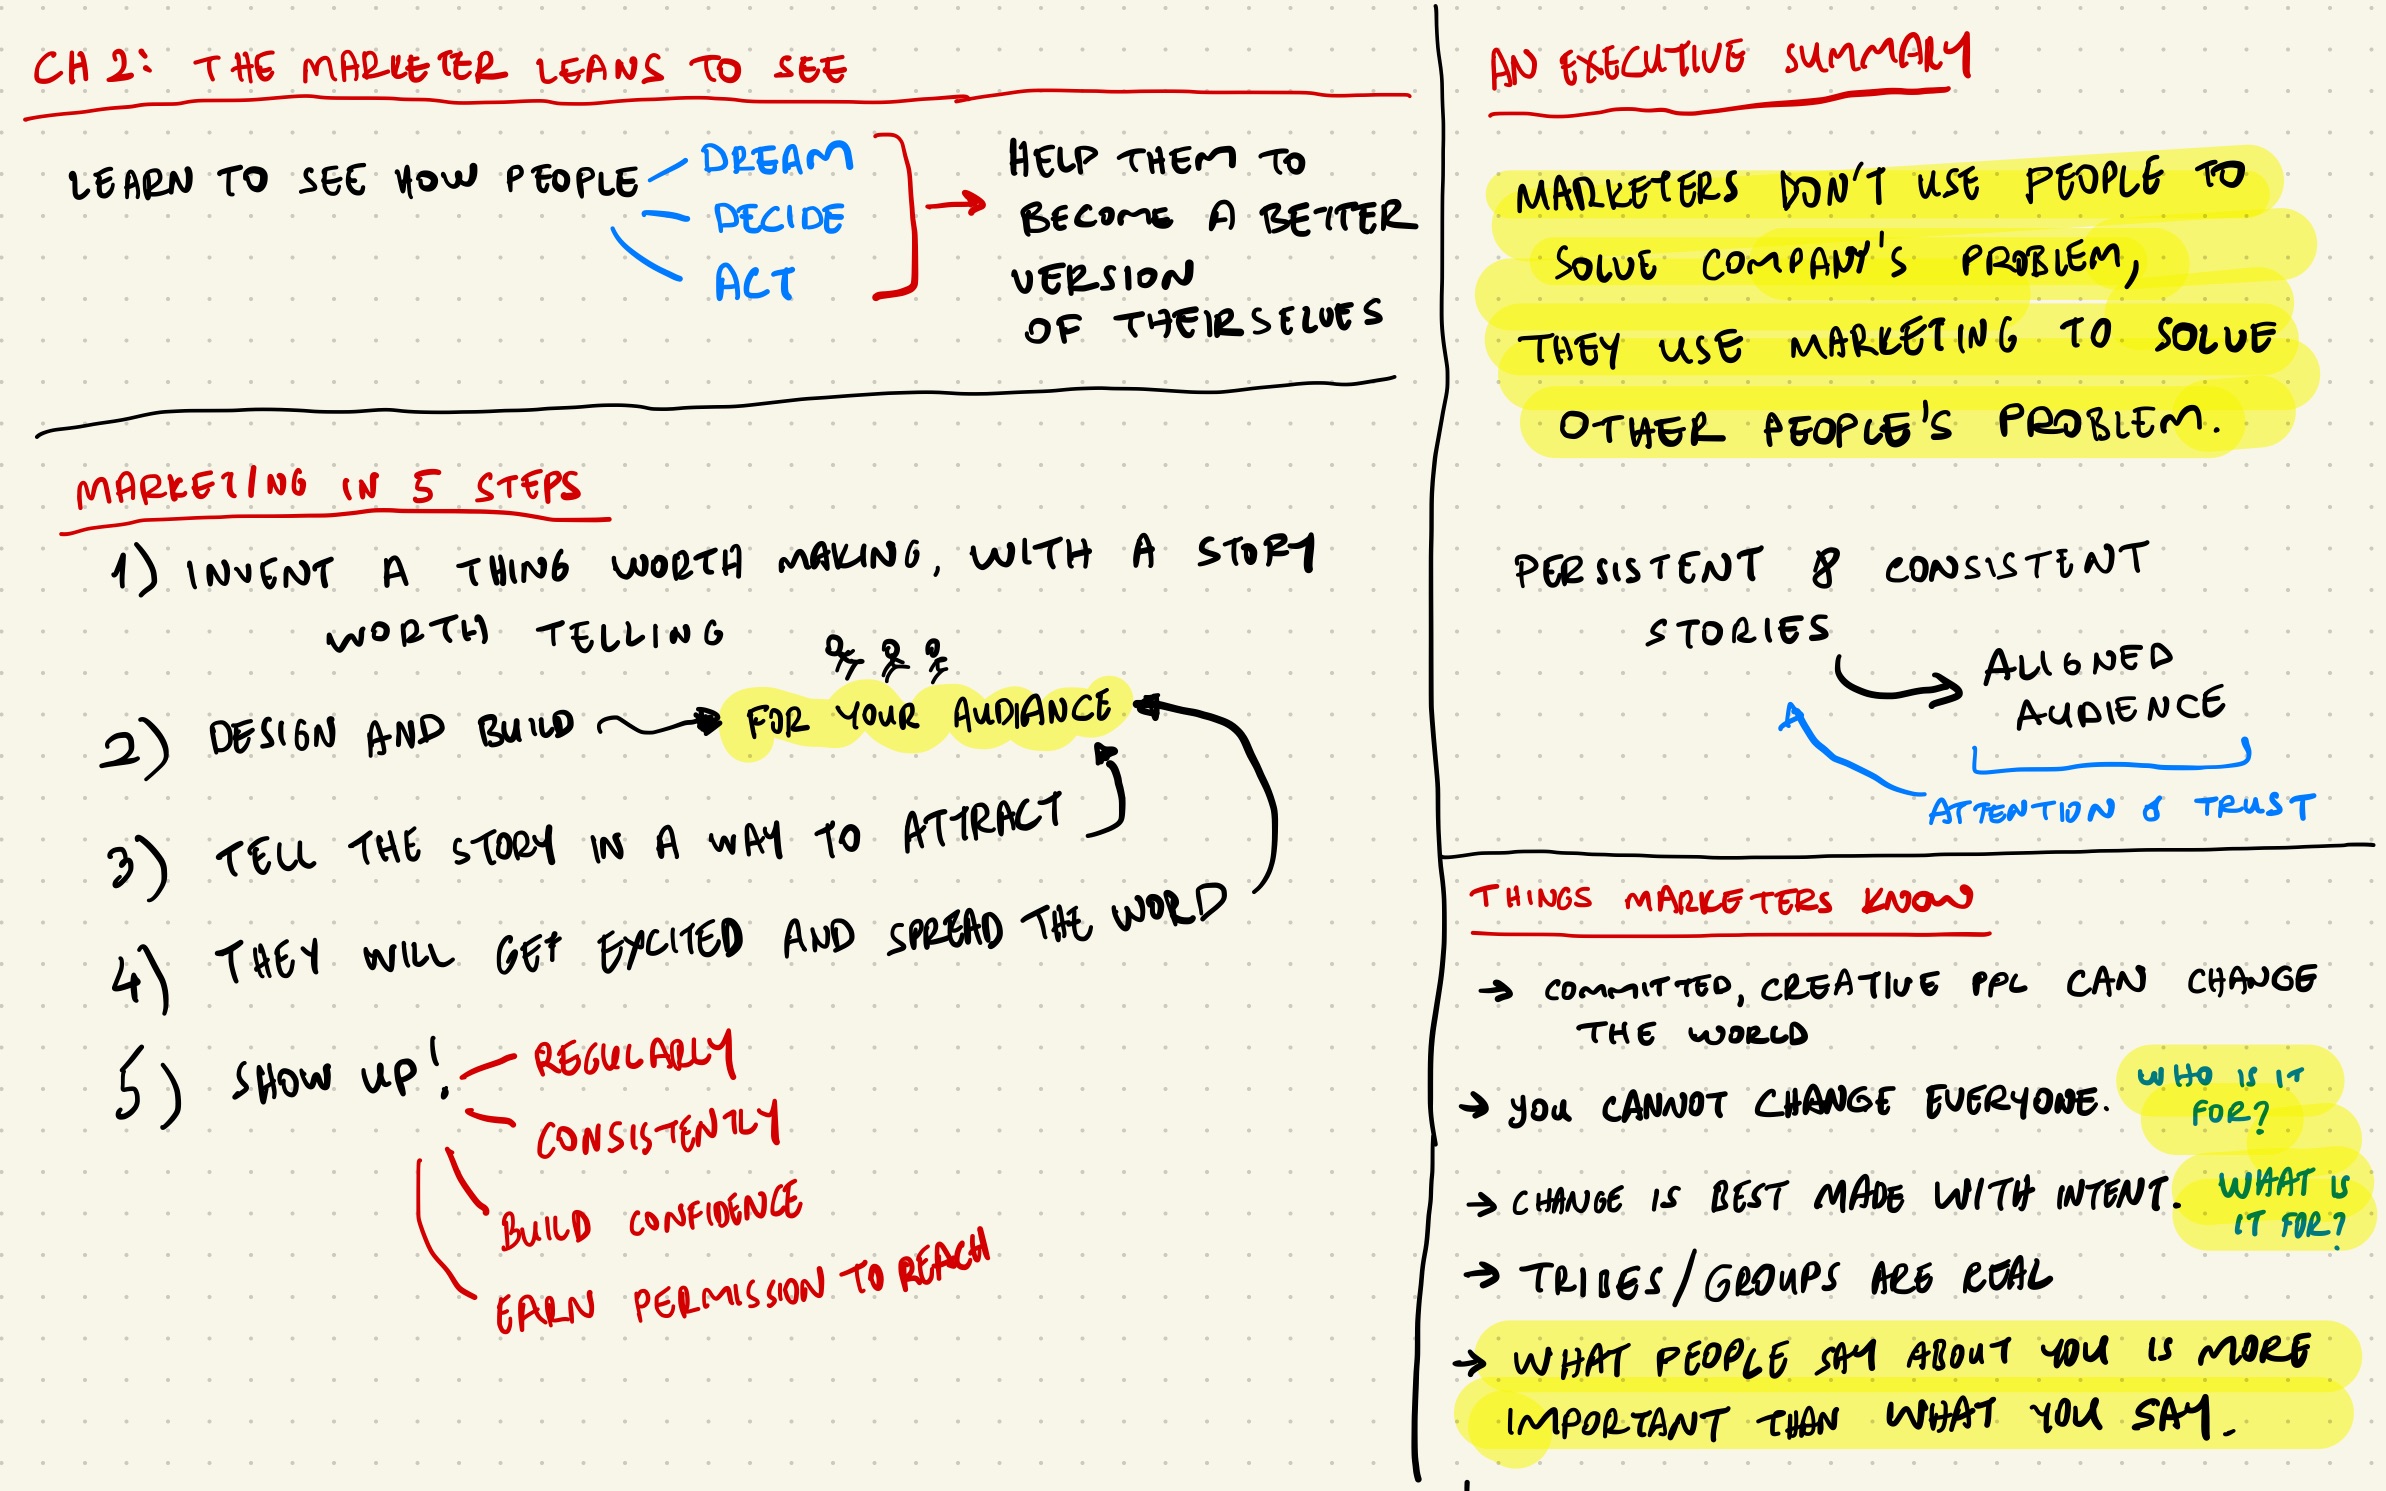 CH 2: THE MARKETER LEANS TO SEE
LEARN TO SEE HOW PEOPLE
DREAM
DECIDE
ACT
HELP THEM TO
BECOME A BETTER
VERSION
OF THEIRSELVES
MARKETING IN 5 STEPS
1) INVENT A THING WORTH MAKING, WITH A STORY
WORTH TELLING
2) DESIGN AND BUILD FOR YOUR AUDIANCE
3) TELL THE STORY IN A WAY TO ATTRACT
4) THEY WILL GET EXCITED AND SPREAD THE WORD
5) SHOW UP!
REGULARLY
CONSISTENTLY
BUILD CONFIDENCE
EARN PERMISSION TO REACH
AN EXECUTIVE SUMMARY
MARKETERS DON'T USE PEOPLE TO
SOLVE COMPANY'S PROBLEM,
THEY USE MARKETING TO SOLVE
OTHER PEOPLE'S PROBLEM.
PERSISTENT & CONSISTENT
STORIES
ALIGNED
AUDIENCE
ATTENTION & TRUST
THINGS MARKETERS KNOW
→ COMMITTED, CREATIVE PPL CAN CHANGE
THE WORLD
→ YOU CANNOT CHANGE EVERYONE.
WHO IS IT
FOR?
→ CHANGE IS BEST MADE WITH INTENT.
WHAT IS
IT FOR?
→ TRIBES/GROUPS ARE REAL
→ WHAT PEOPLE SAY ABOUT YOU IS MORE
IMPORTANT THAN WHAT YOU SAY.